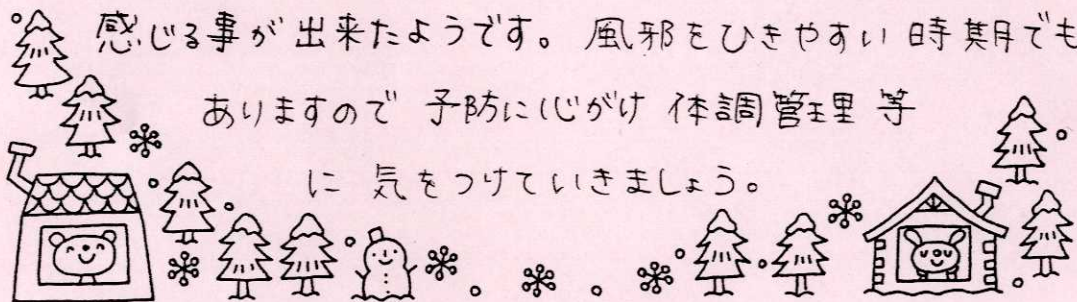 感じる事が出来たようです。風邪をひきやすい時期でも
ありますので 予防に心がけ 体調管理等
に 気をつけていきましょう。